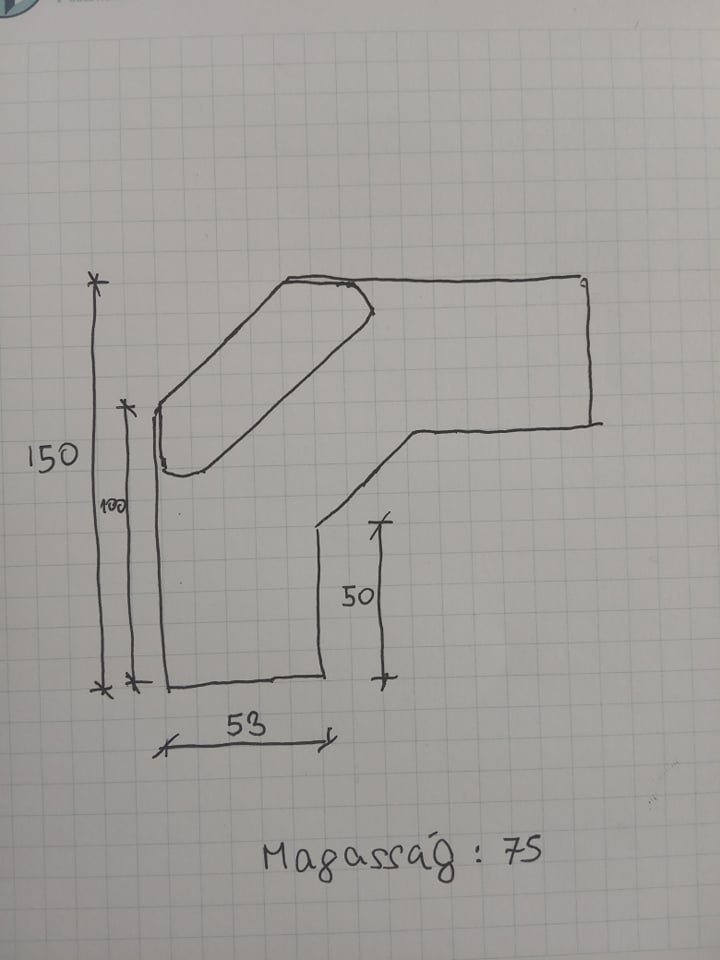 150
100
50
53
Magasság: 75